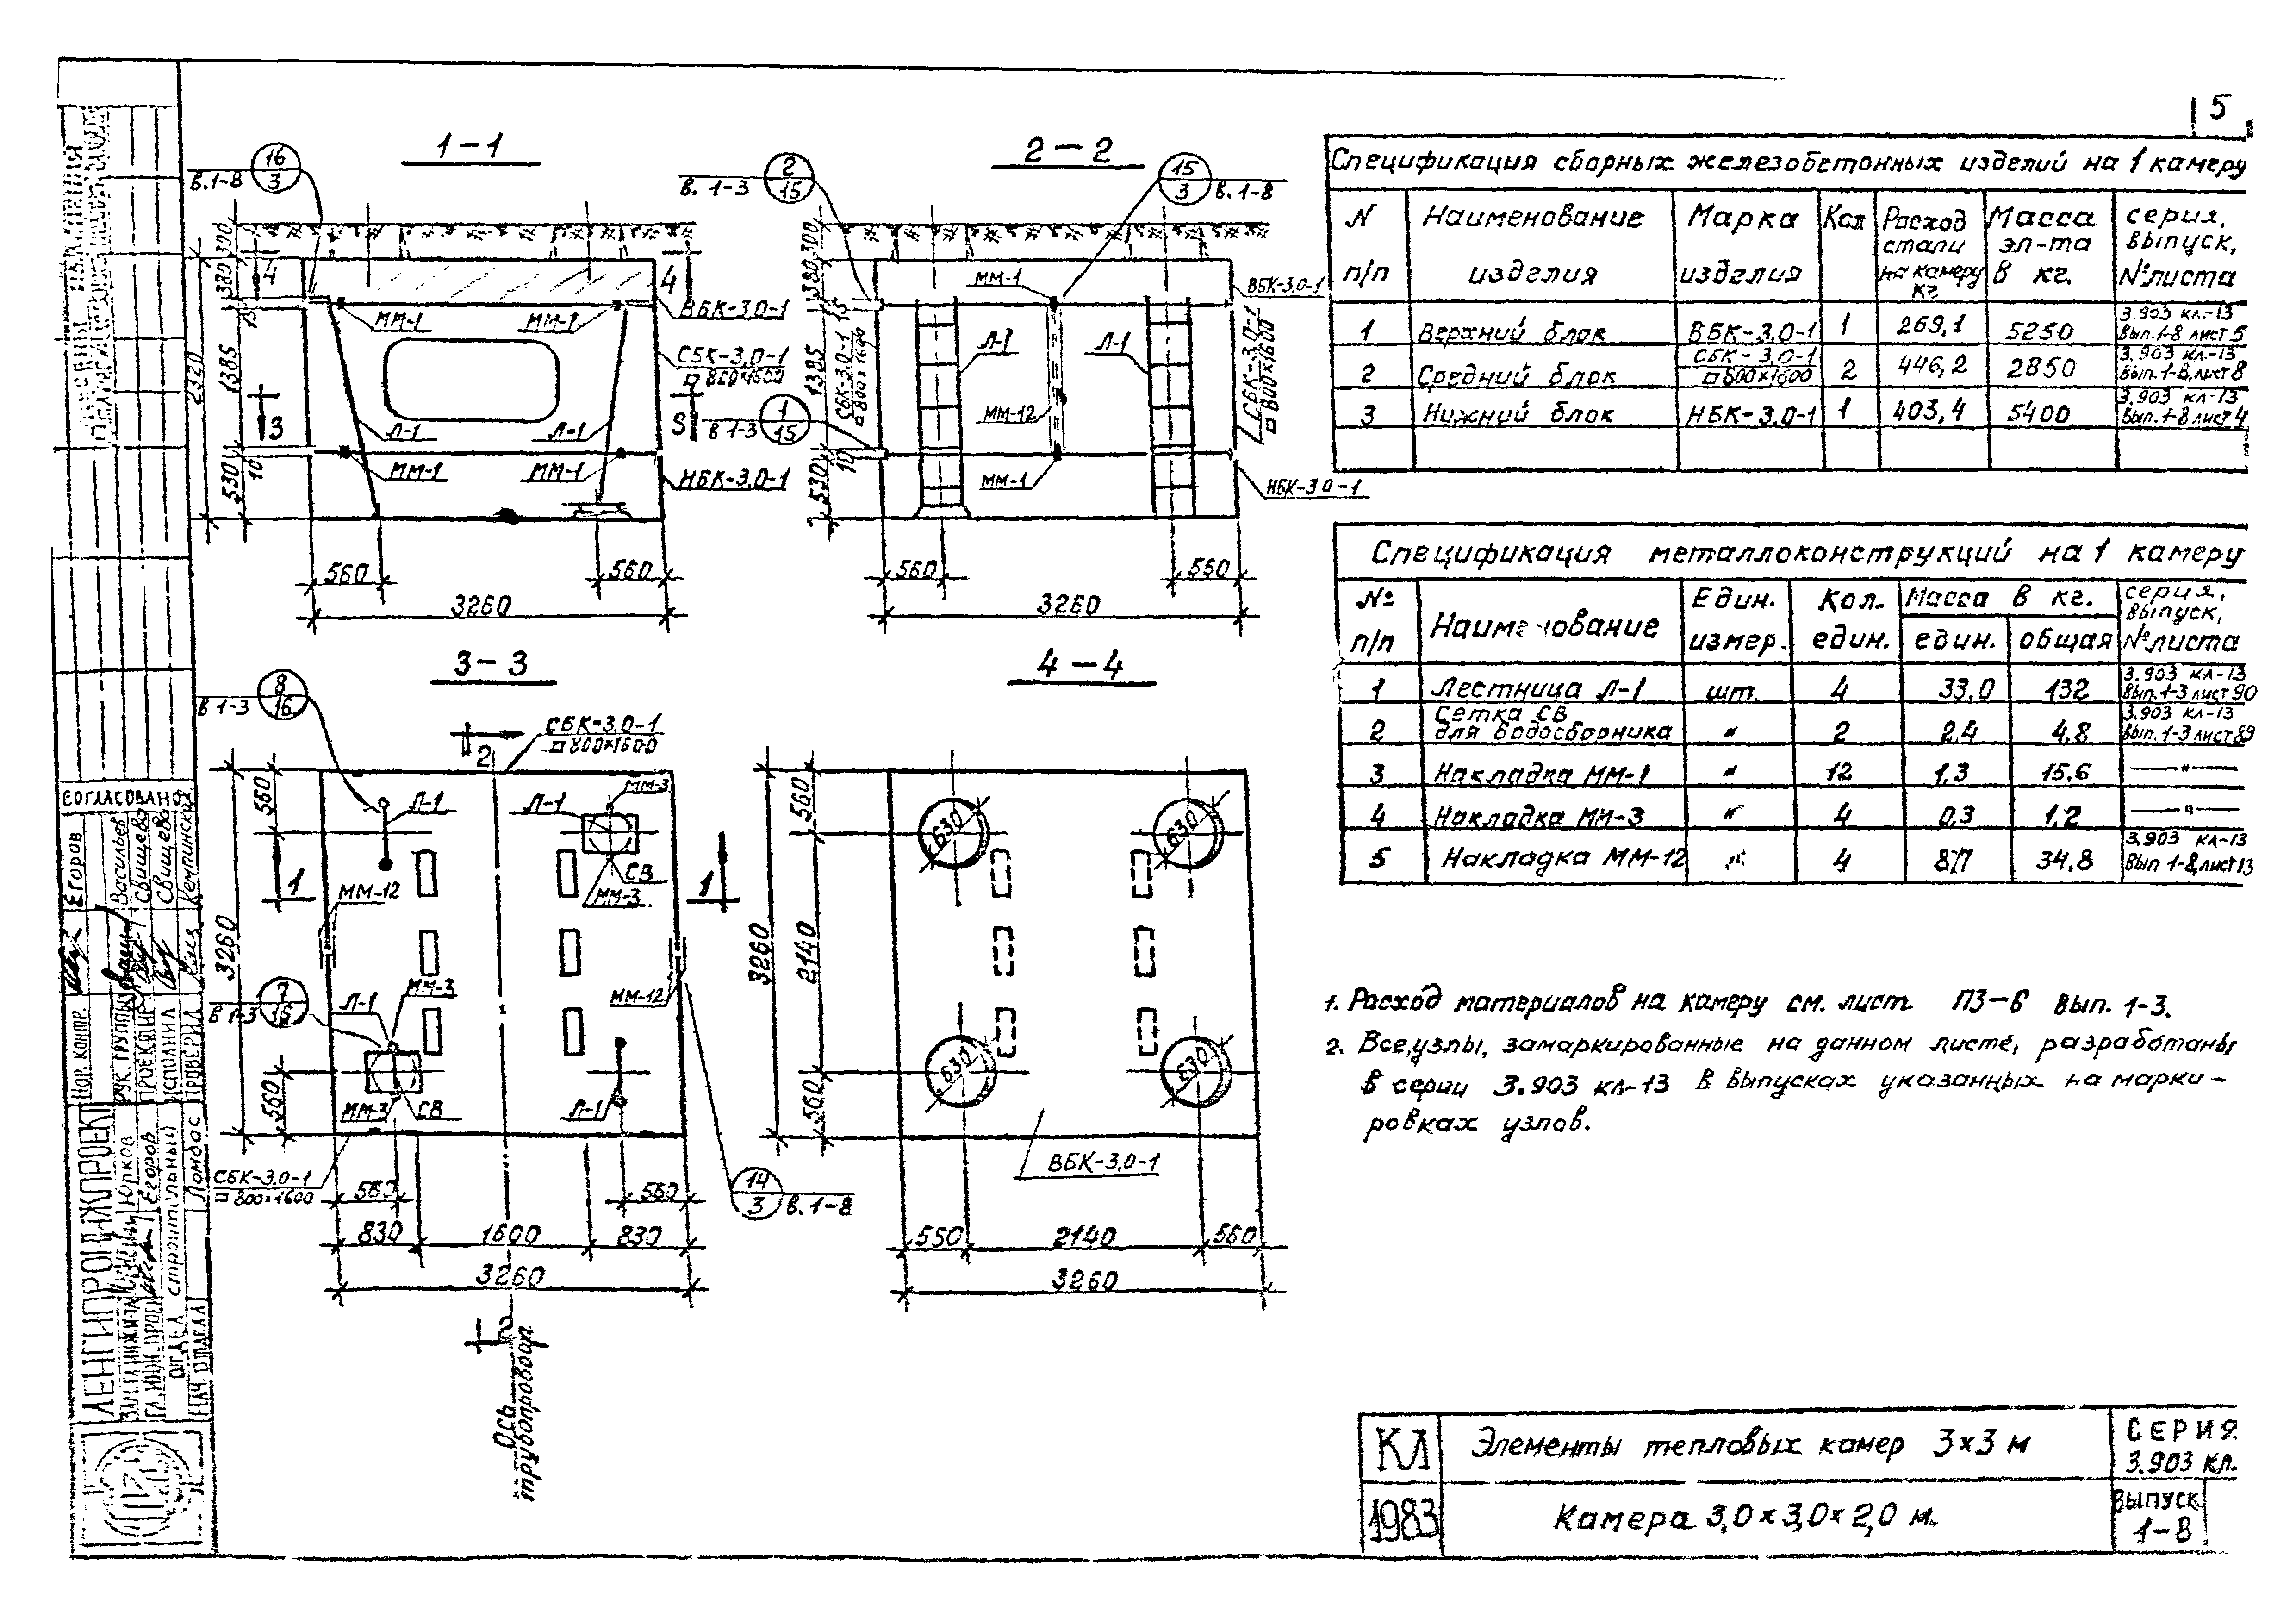 5
1-1
16
3
в.1-8
300
380
4
4
15
1385
2320
3
3
530
10
ММ-1
ММ-1
ВБК-3,0-1
СБК-3,0-1
□ 800×1600
Л-1
Л-1
ММ-1
ММ-1
НБК-3,0-1
560
560
3260
2-2
2
15
в. 1-3
15
3
в. 1-8
300
380
15
1385
СБК-3,0-1
□ 800×1600
1
15
в 1-3
530
10
ММ-1
Л-1
Л-1
ММ-12
ММ-1
ВБК-3,0-1
СБК-3,0-1
□ 800×1600
НБК-3,0-1
560
560
3260
3-3
8
16
в 1-3
2
СБК-3,0-1
□ 800×1600
560
Л-1
Л-1
ММ-3
СВ
ММ-3
1
1
ММ-12
3260
7
16
в 1-3
Л-1
ММ-3
ММ-12
560
ММ-3
СВ
Л-1
СБК-3,0-1
□ 800×1600
560
560
14
3
в. 1-8
830
1600
830
3260
2
Ось
трубопровода
4-4
560
630
630
3260
2140
630
630
560
ВБК-3,0-1
550
2140
560
3260
Спецификация сборных железобетонных изделий на 1 камеру
N п/п
Наименование изделия
Марка изделия
Кол
Расход стали на камеру кг
Масса эл-та в кг.
серия, выпуск, № листа
1 Верхний блок ВБК-3,0-1 1 269,1 5250 3.903 кл-13 Вып.1-8 лист 5
2 Средний блок СБК-3,0-1 □ 800×1600 2 446,2 2850 3.903 кл-13 Вып.1-8, лист 8
3 Нижний блок НБК-3,0-1 1 403,4 5400 3.903 кл-13 Вып.1-8 лист 4
Спецификация металлоконструкций на 1 камеру
№ п/п
Наименование
Един. измер.
Кол. един.
Масса в кг.
един.
общая
серия, выпуск, № листа
1 Лестница Л-1 шт. 4 33,0 132 3.903 кл-13 Вып.1-3 лист 90
2 Сетка СВ для водосборника " 2 2.4 4,8 3.903 кл-13 Вып.1-3 лист 89
3 Накладка ММ-1 " 12 1.3 15.6 —"—
4 Накладка ММ-3 " 4 0,3 1,2 —"—
5 Накладка ММ-12 " 4 8,7 34,8 3.903 кл-13 Вып 1-8, лист 13
1. Расход материалов на камеру см. лист ПЗ-6 вып. 1-3.
2. Все узлы, замаркированные на данном листе, разработаны
в серии 3.903 кл-13 в выпусках указанных на марки-
ровках узлов.
КЛ
Элементы тепловых камер 3×3 м
СЕРИЯ
3.903 кл.
1983
Камера 3,0×3,0×2,0 м.
ВЫПУСК
1-8
СОГЛАСОВАНО
Егоров
Васильев
Свищева
Свищева
Нор. контр.
Рук. группы
Проектир
Исполнил
Проверил
ЛЕНГИПРОИНЖПРОЕКТ
Юрков
Егоров
Отдел строительный
Нач. отдела
Ломбас